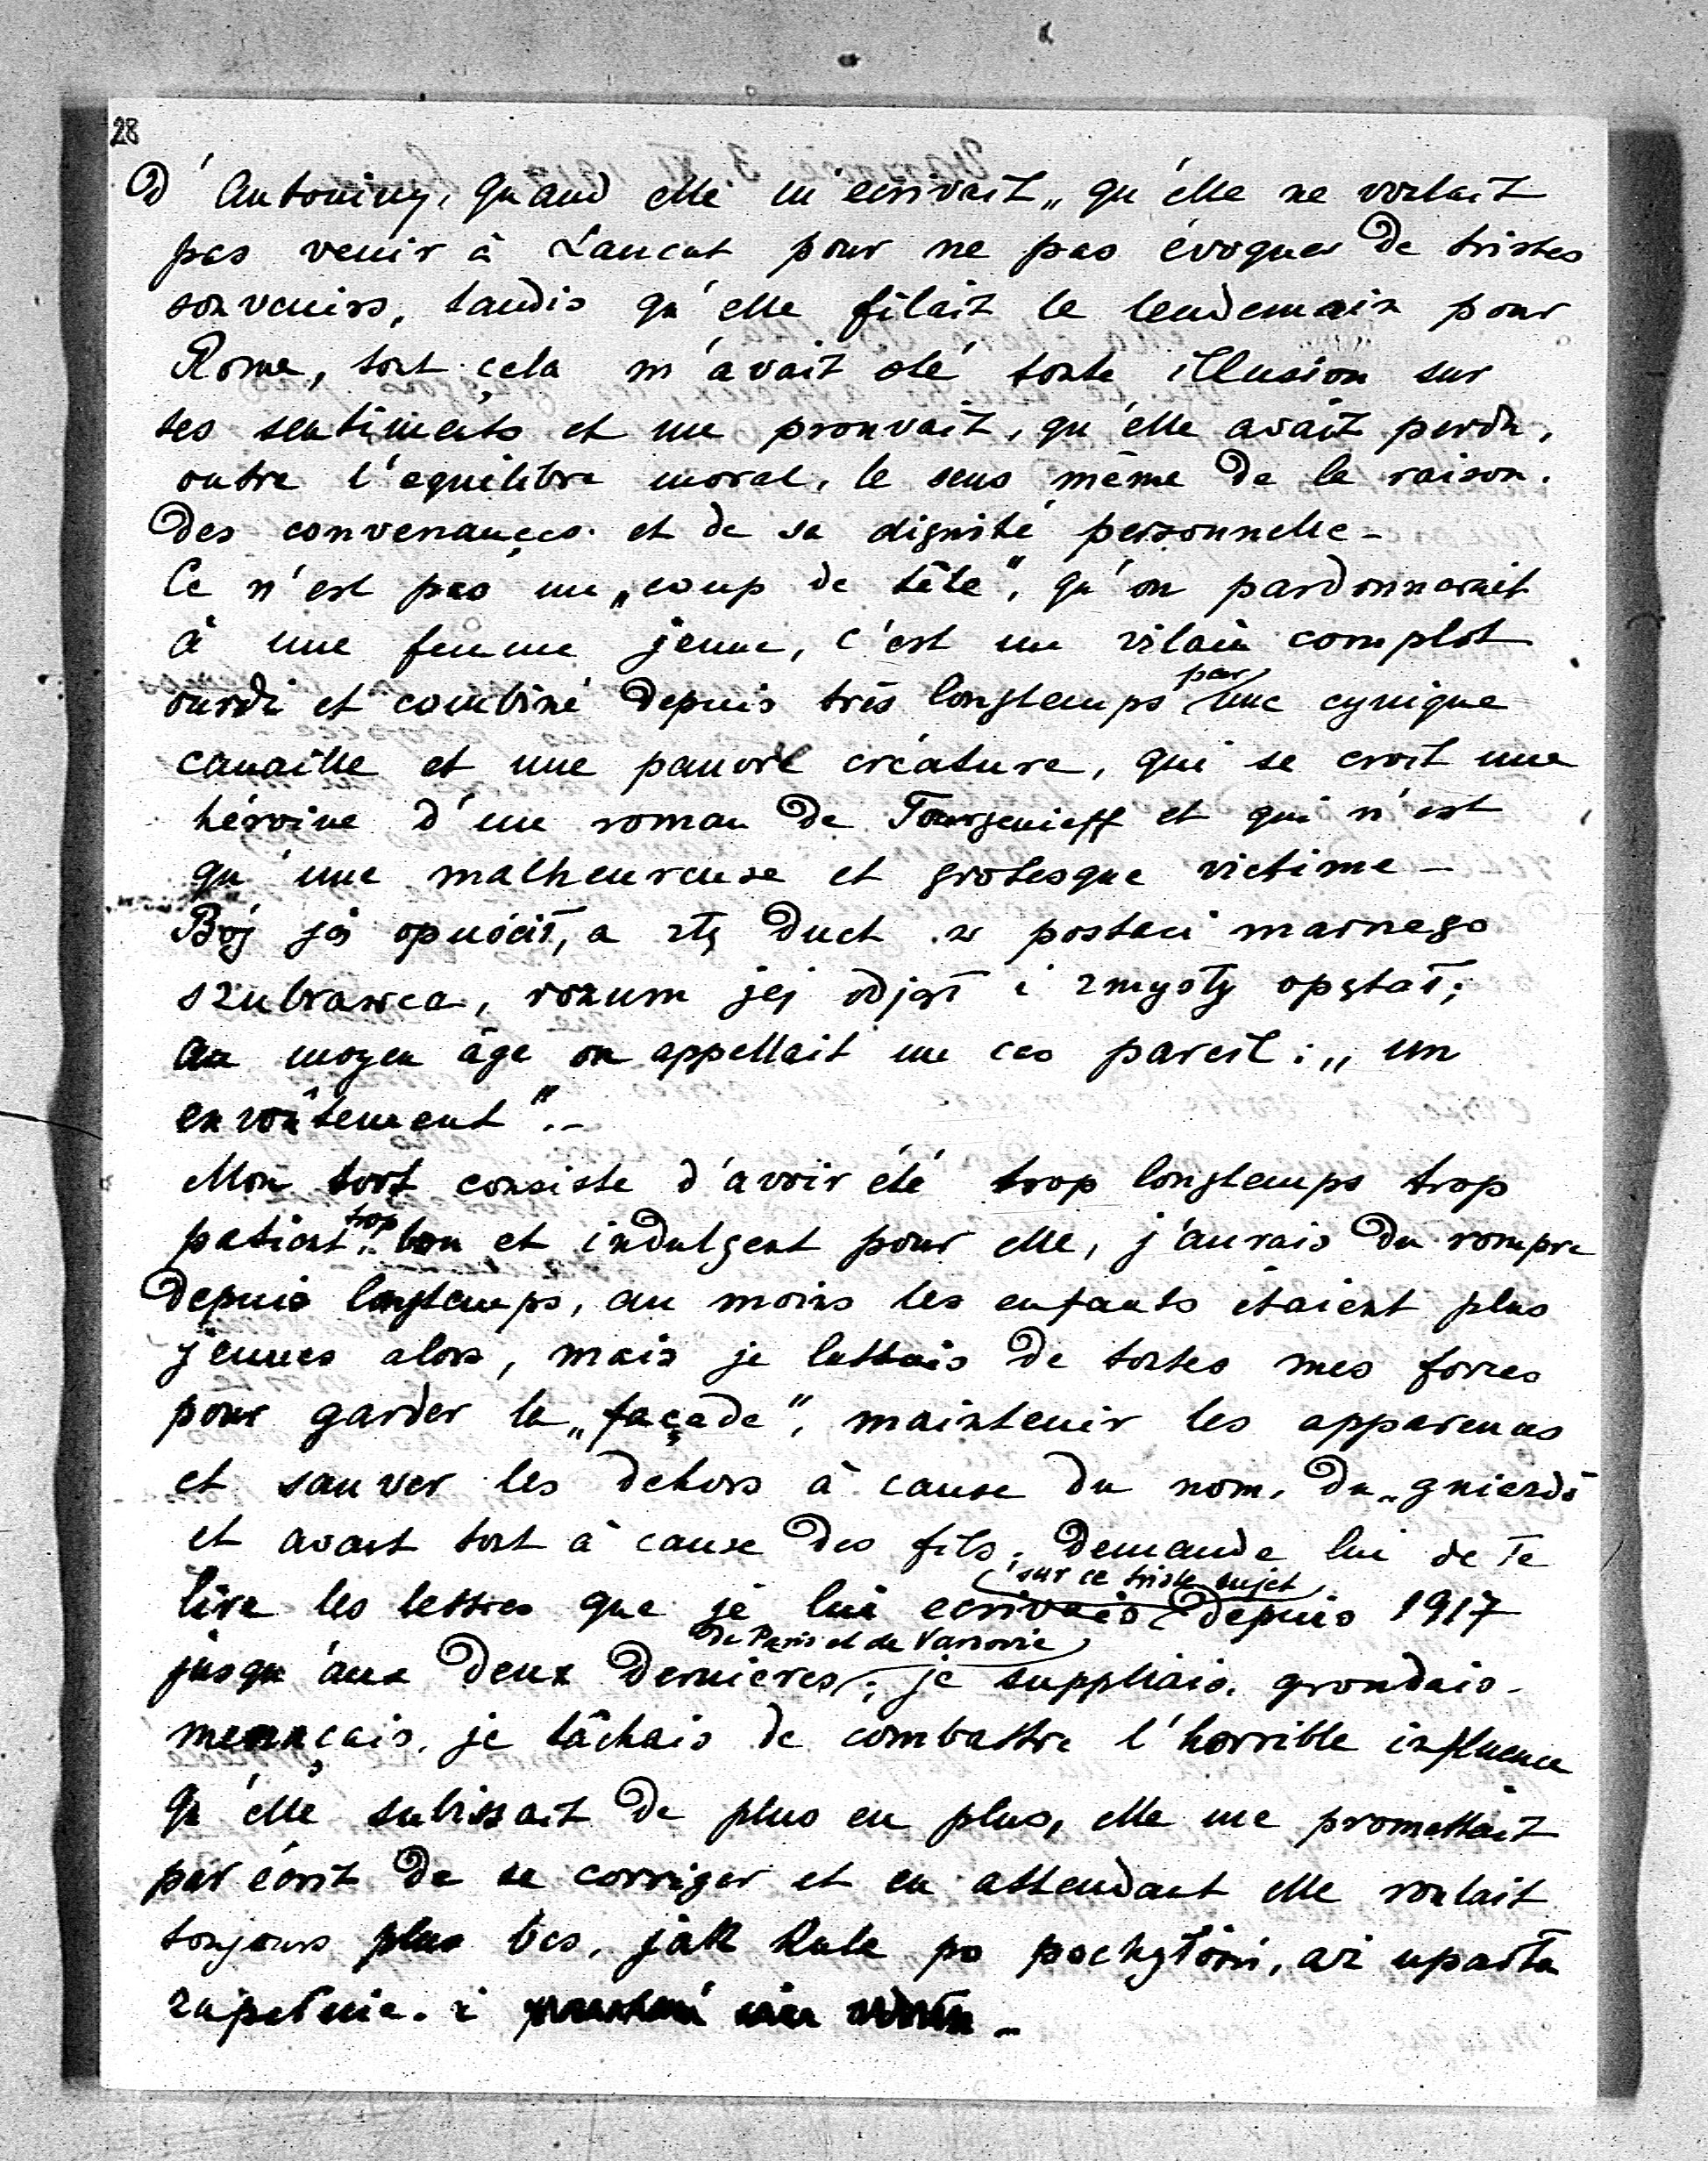 28
D'Antoniny, quand elle m'ecrivait „ qu'elle ne voulait
pas venir à Łancut pour ne pas évoquer de tristes
souvenirs, tandis qu'elle filait le lendemain pour
Rome, tout çela m'avait ôté toute illusion sur
ses sentiments et me prouvait, qu'elle avait perdu,
outre l'equilibre moral, le sens même de la raison,
des convenançes et de sa dignité personnelle -
Ce n'est pas un „coup de tête", qu'on pardonnerait
à une femme jeune, c'est un vilain complot
ourdi et combiné depuis très longtemps par une cynique
canaille et une pauvre créature, qui se croit une
héroine d'un roman de Tourgenieff et qui n'est
qu'une malheureuse et grotesque victime -
Bóg ją opuścił, a zły duch w postaci marnego
szubrawca, rozum jej odjął i zmysły opętał;
au moyen âge on appellait un cas pareil: „ un
envoûtement". -
Mon tort consiste d'avoir été trop longtemps trop
patient, trop bon et indulgent pour elle, j'aurais du rompre
depuis longtemps, au moins les enfants étaient plus
jeunes alors, mais je luttais de toutes mes forces
pour garder la „façade", maintenir les apparences
et sauver les dehors à cause du nom, du „gniazdo
et avant tout à cause des fils; demande lui de Te
lire les lettres que je lui ecrivais sur ce triste sujet depuis 1917
jusqu'aux deux dernières de Paris et de Varsovie; je suppliais, grondais -
menaçais, je tâchais de combattre l'horrible influence
qu'elle subissait de plus en plus, elle me promettait
par écrit de se corriger et en attendant elle roulait
toujours plus bas, jak kula po pochyłości, aż upadła
zupełnie. i